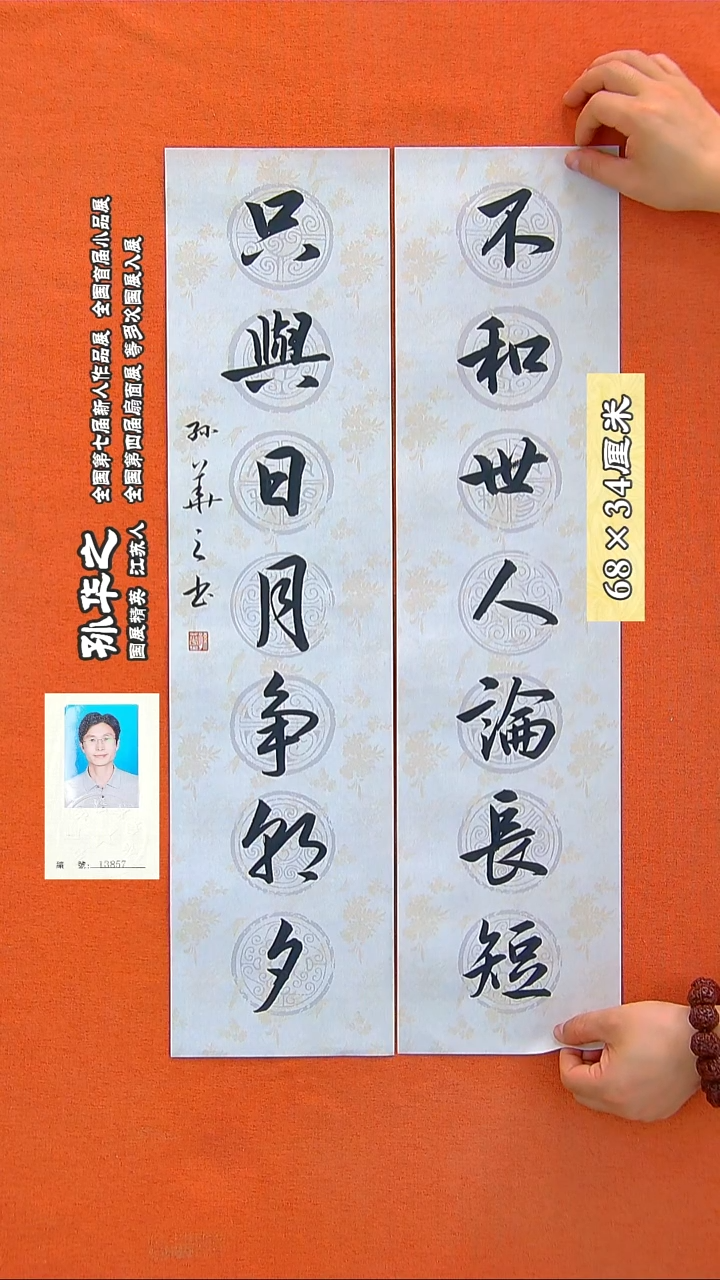 不和世人論長短
只與日月争朝夕
孙華之书
孙华之
国展精英 江苏人
全国第七届新人作品展 全国首届小品展
全国第四届扇面展 等多次国展入展
68×34厘米
編 號: 13857